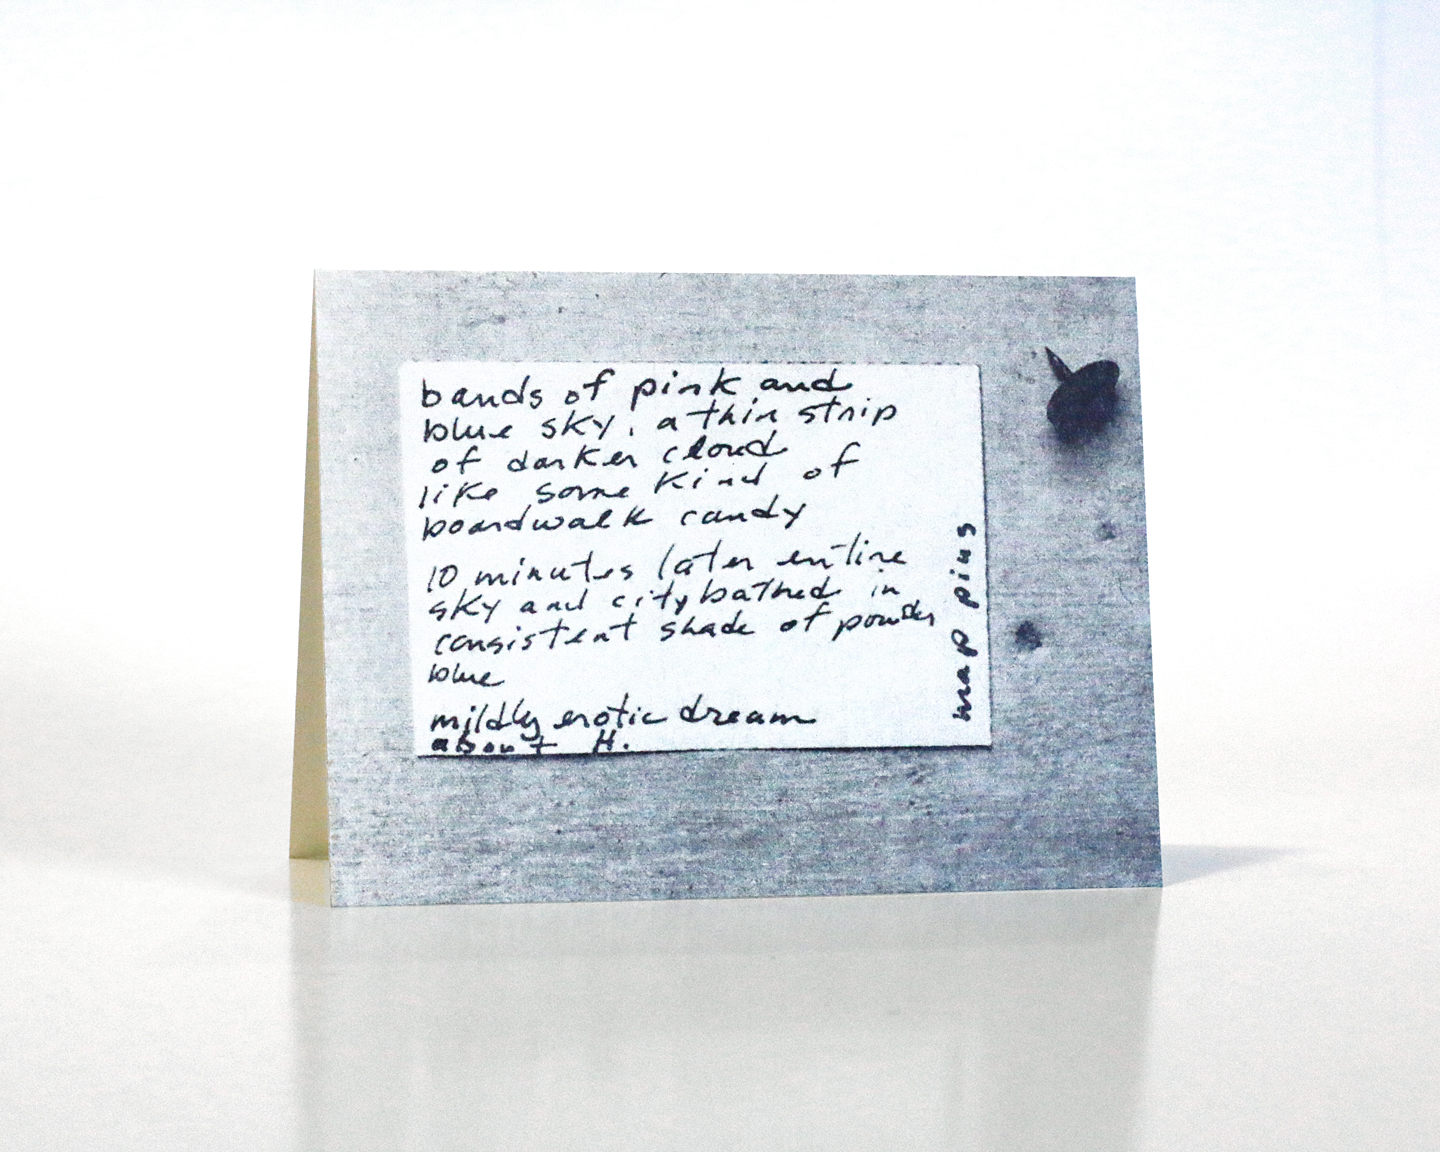 bands of pink and
blue sky, a thin strip
of darker cloud
like some kind of
boardwalk candy
10 minutes later entire
sky and city bathed in
consistent shade of powder
blue
mildly erotic dream
about H.
map pins